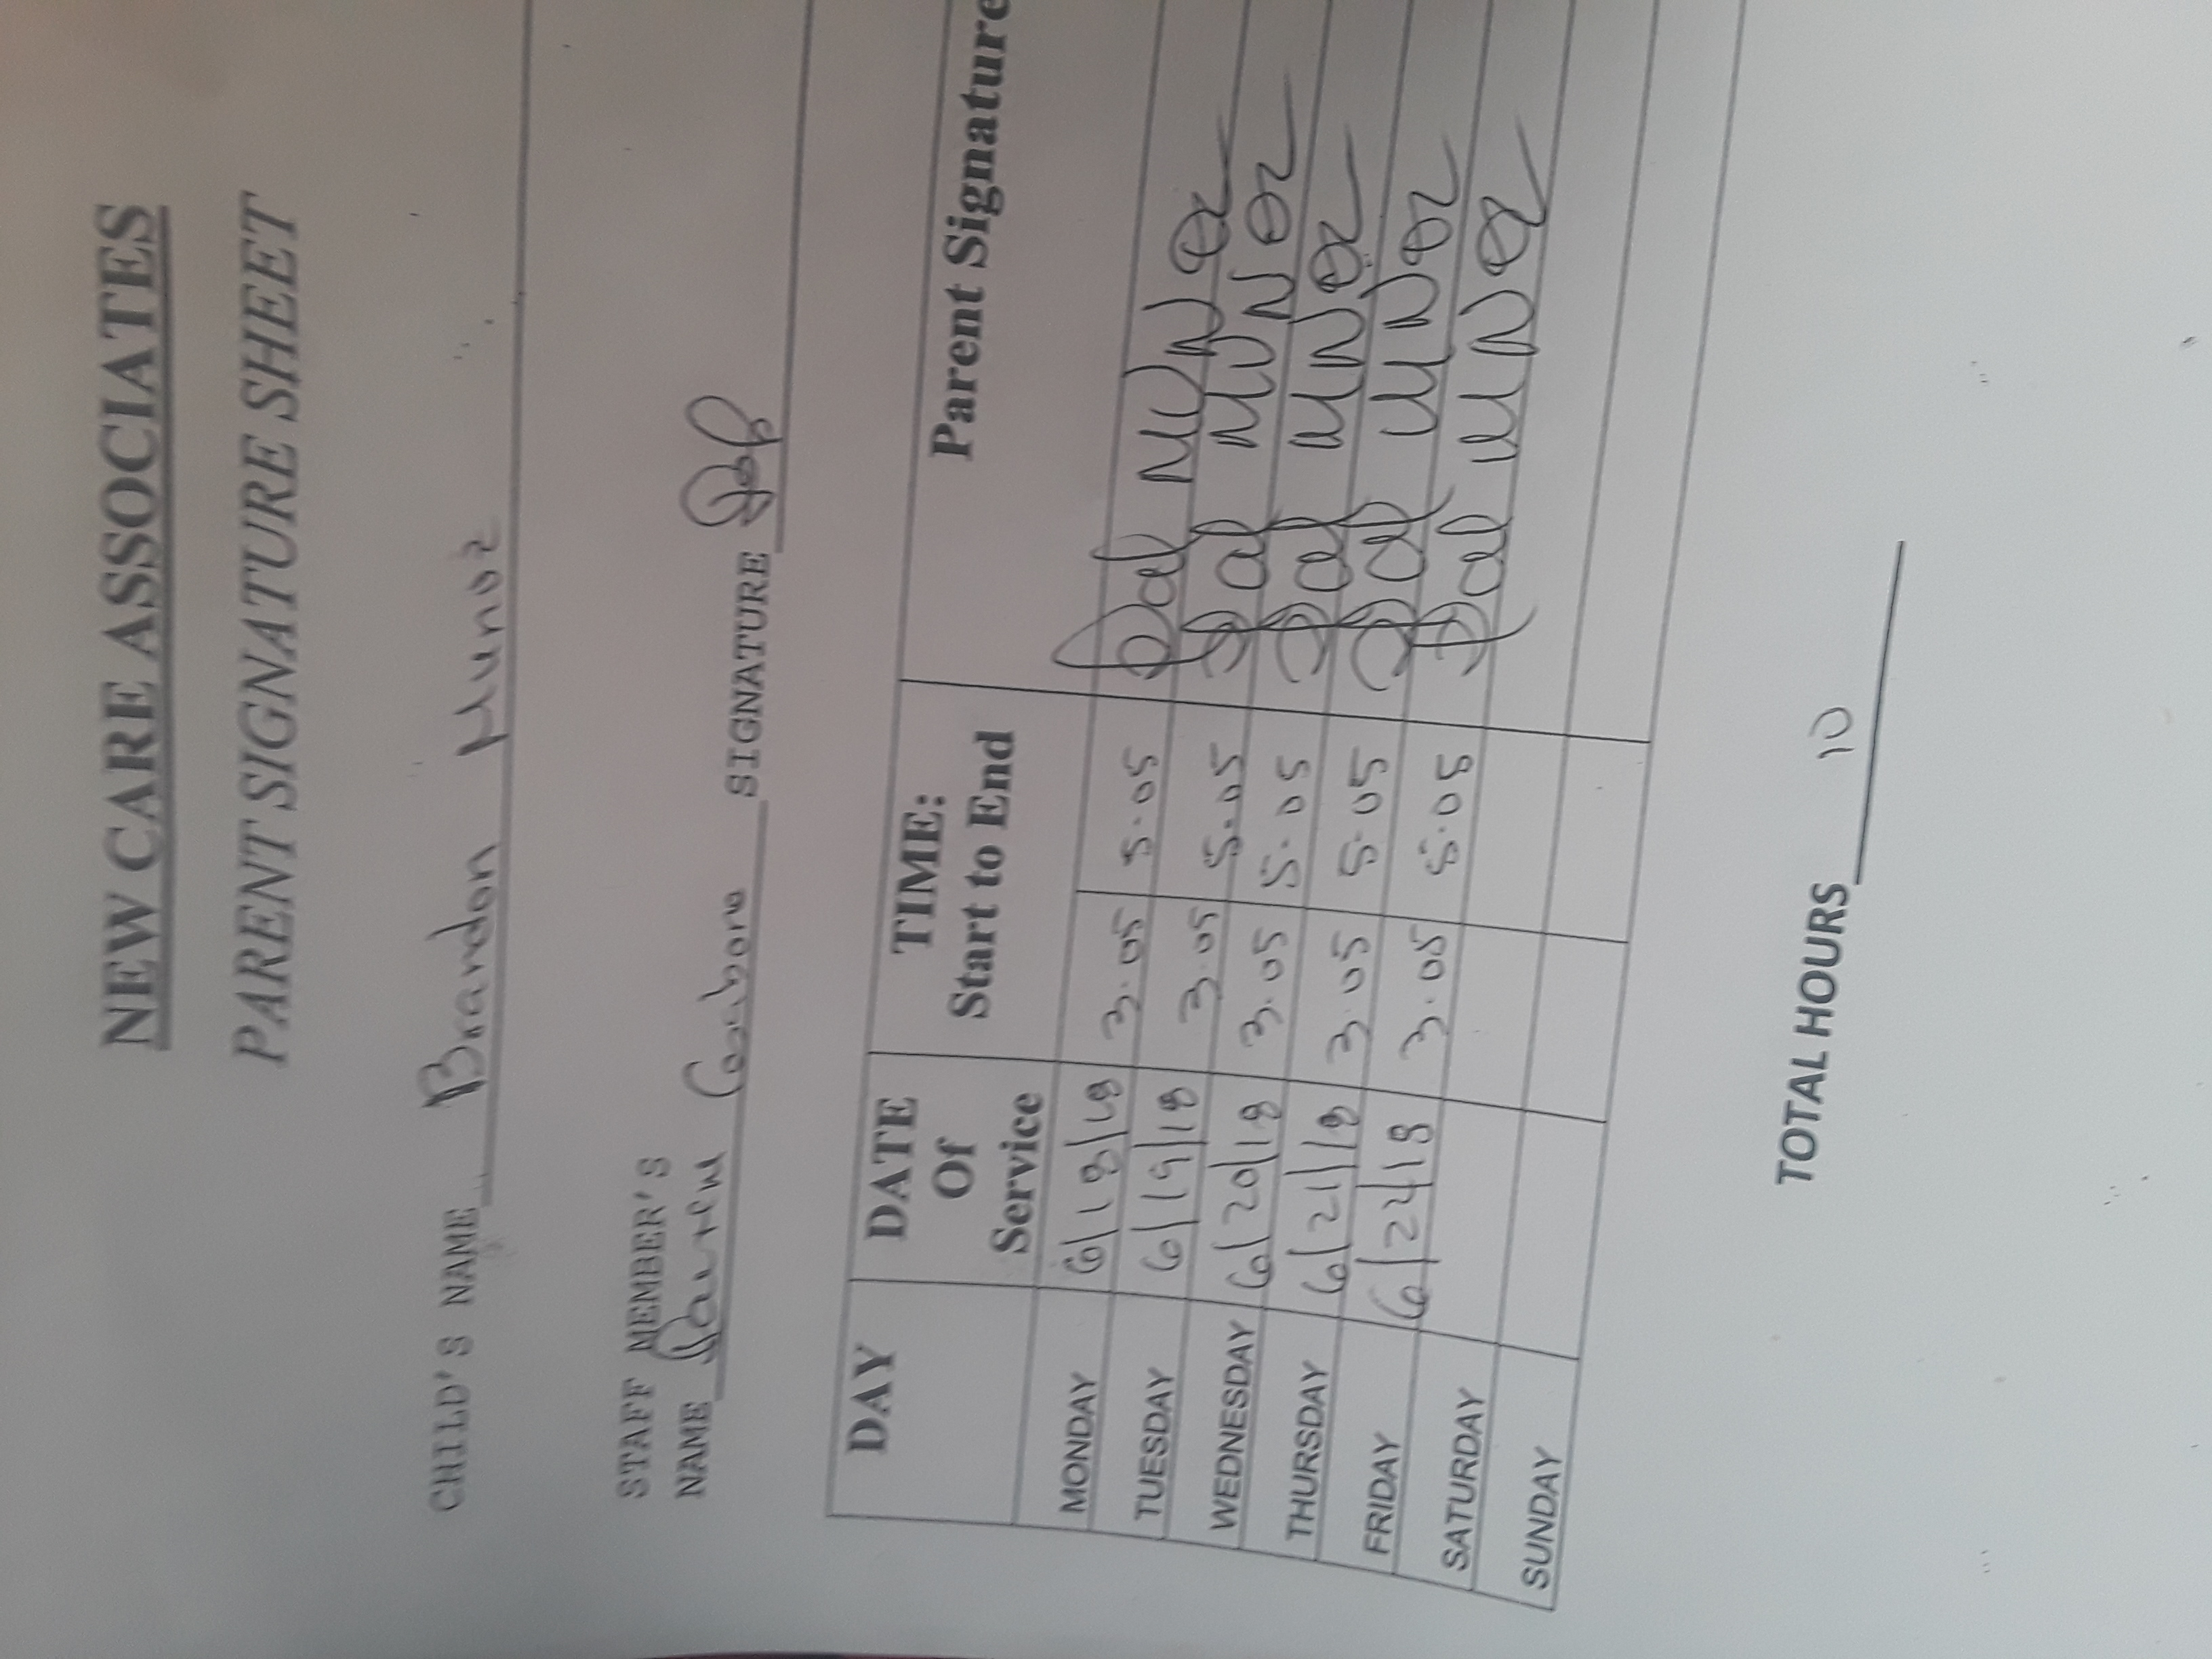 NEW CARE ASSOCIATES
PARENT SIGNATURE SHEET
CHILD'S NAME Brandon Munoz
STAFF MEMBER'S
NAME SIGNATURE
DAY DATE Of Service TIME: Start to End Parent Signature
MONDAY 6/18/18 3.05 5.05 MUNOZ
TUESDAY 6/19/18 3.05 5.05 MUNOZ
WEDNESDAY 6/20/18 3.05 5.05 MUNOZ
THURSDAY 6/21/18 3.05 5.05 MUNOZ
FRIDAY 6/22/18 3.05 5.05 MUNOZ
SATURDAY
SUNDAY
TOTAL HOURS 10